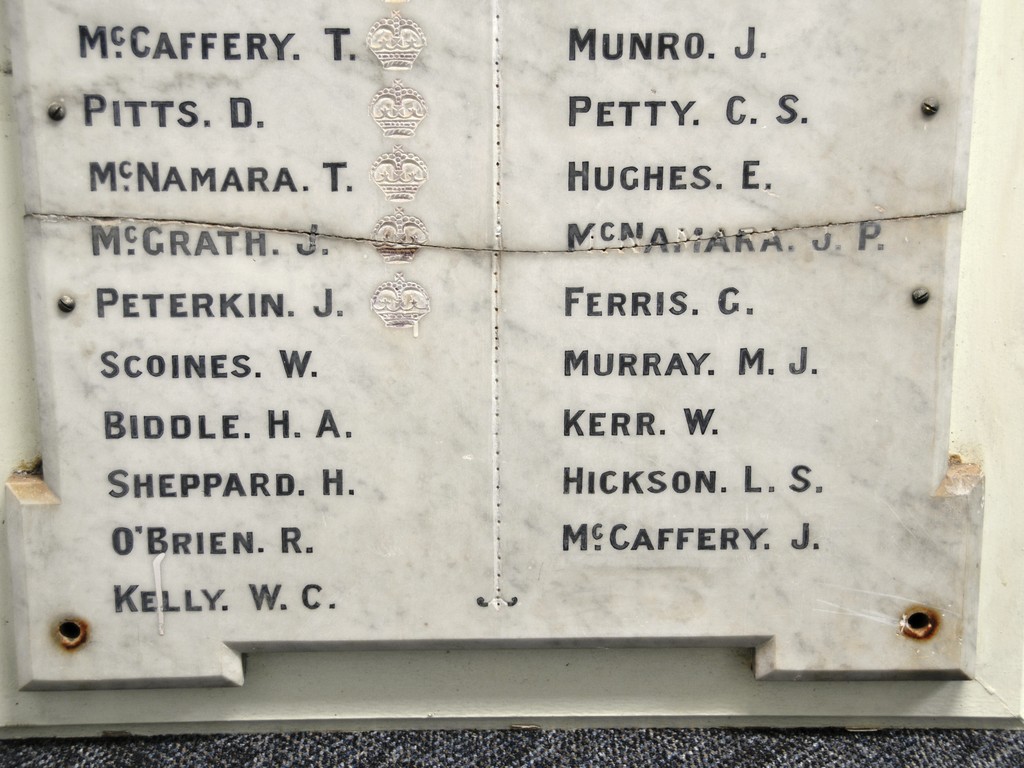 McCAFFERY. T.
PITTS. D.
McNAMARA. T.
McGRATH. J.
PETERKIN. J.
SCOINES. W.
BIDDLE. H. A.
SHEPPARD. H.
O'BRIEN. R.
KELLY. W. C.
MUNRO. J.
PETTY. C. S.
HUGHES. E.
McNAMARA. J. P.
FERRIS. G.
MURRAY. M. J.
KERR. W.
HICKSON. L. S.
McCAFFERY. J.